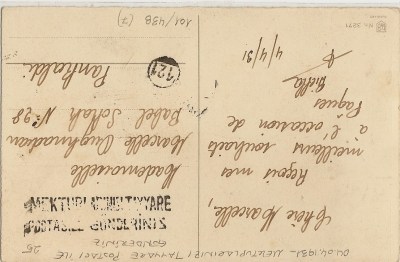 Chère Marcelle,
Reçois mes
meilleurs souhaits
à l'occasion de
Pâques
4/4/31
Mademoiselle
Marcelle
Babel Sokak No 28
Pankaldi
121
MEKTUPLARINIZI TAYYARE
POSTASILE GÖNDERİNİZ
04.04.1931- MEKTUPLARINIZI TAYYARE POSTASI İLE
GÖNDERİNİZ
25
101/438 (7)